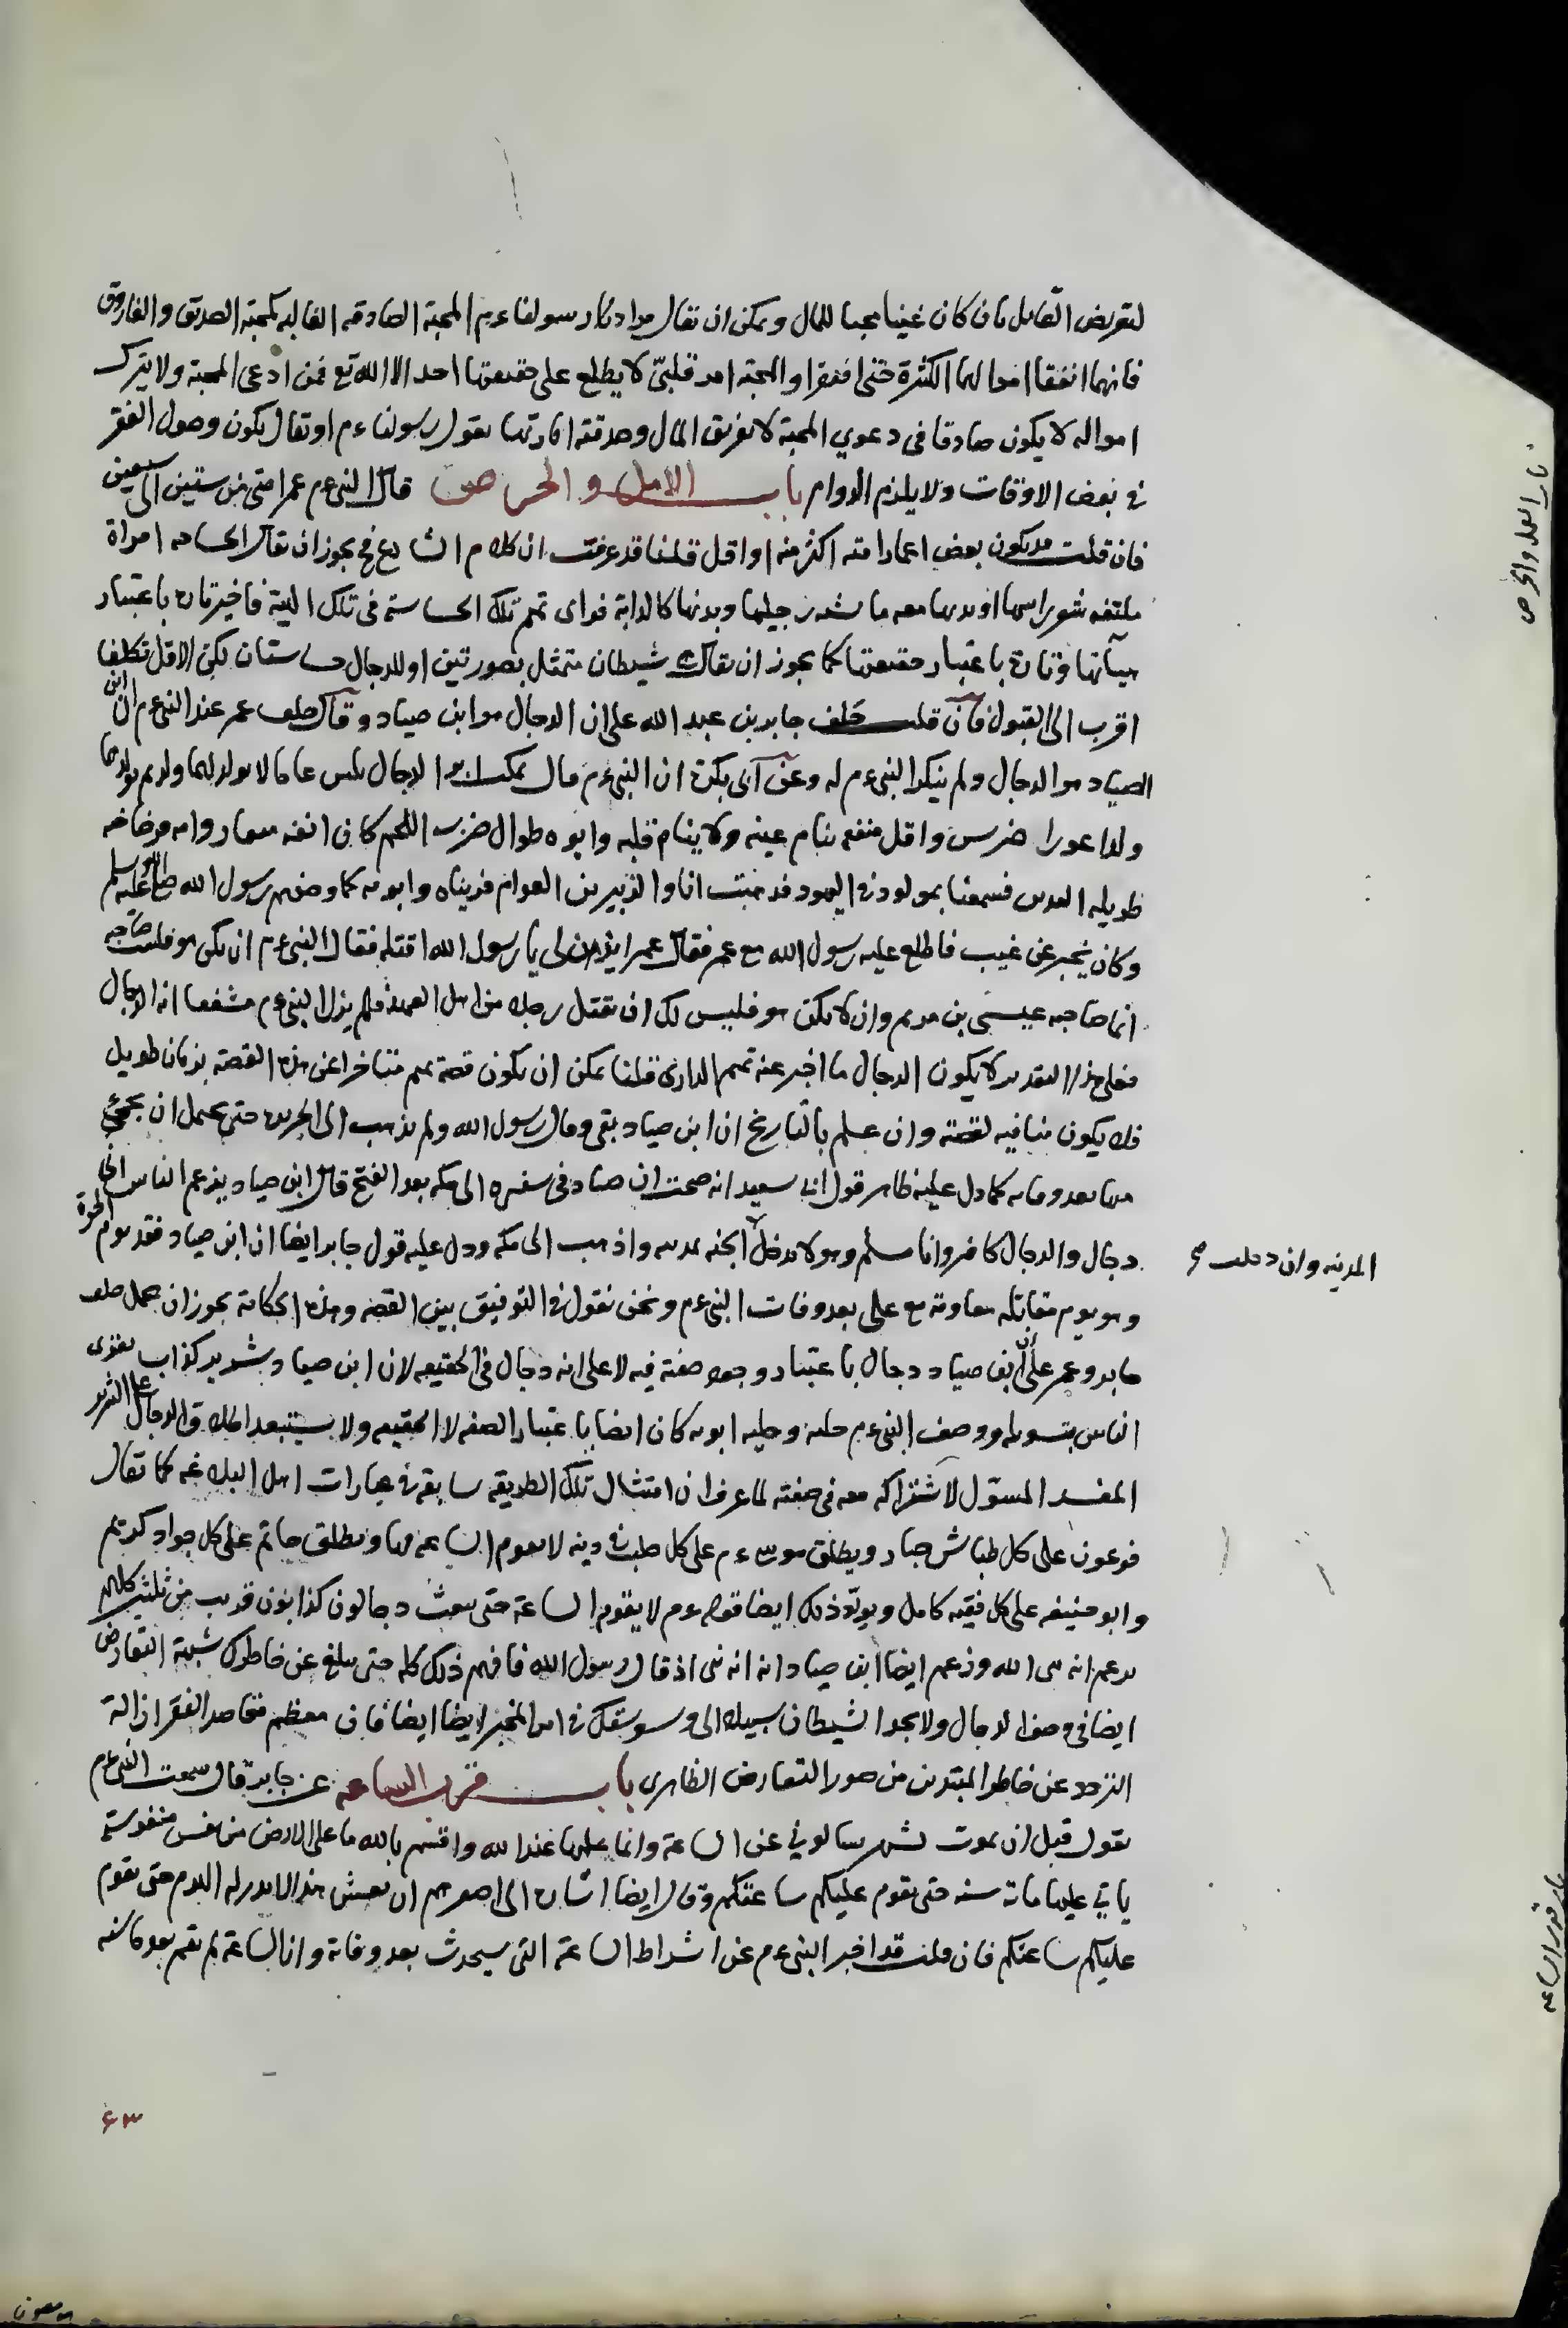 لتعريض القايل بان كان غنيا محبا للمال ويمكن ان يقال مراد رسولنا ءم المحبة الصادقه الغالبه كمحبة الصديق والفاروق
فانهما انفقا اموالهما الكثيرة حتى افتقرا والمحبة امر قلبىّ لا يطلع على حقيقتها احد الا الله تع فمن ادعى المحبة ولا يترك
امواله لا يكون صادقا فى دعوي المحبة لا تعريق المال وصدقته يقول رسولنا ءم او يقال يكون وصول الفقر
فى بعض الاوقات ولا يلزم الدوام باب الامل والحرص قال النبى ءم عمر امتى من ستين الى سبعين
فان قلت قد يكون بعض اعمار امته اكثر منه او اقل قلنا قد عرفت ان كلام الشارع فى يجوز ان يقال الجساسه امراة
ملتفه شعر راسها وبدنها كالدابة فراى تميم تلك الجساسة فى تلك فاخبر تارة باعتبار
هيأتها وتارة باعتبار حقيقتها كما يجوز ان يقال شيطان متمثل بصورتين او للدجال جساستان لكن الاول اقل تكلفا
اقرب الى القبول فان قلت حلف جابر بن عبد الله على ان الدجال هو ابن صياد وقال حلف عمر عند النبى ءم ان ابن
الصياد هو الدجال ولم ينكر النبى ءم له وعن ابى بكرة ان النبى ءم قال يمكث ابوا الدجال ثلثين عاما لا يولد لهما ولد ثم يولد لهما
ولد اعور اضرس واقل منفعه ينام عينه ولا ينام قلبه وابوه طوال ضرب اللحم كان انفه منقار وامه فرضاخيه
طويله اليدين فسمعنا بمولود فى اليهود فذهبت انا والزبير بن العوام فرايناه وابويه كما وصفهم رسول الله صلى الله عليه وسلم
وكان يخبر عن غيب فاطلع عليه رسول الله مع عمر فقال عمر ايذن لى يا رسول الله اقتله فقال النبى ءم ان يكن هو فلست صاحبه
انما صاحبه عيسى بن مريم وان لا يكن هو فليس لك ان تقتل رجلا من اهل العهد فلم يزل النبى ءم مشفقا انه الدجال
فعلى هذا التقدير لا يكون الدجال ما اخبر عنه تميم الدارى قلنا يمكن ان يكون قصة تميم متاخرا عن هذه القصة بزمان طويل
فلا يكون منافيه لقصته وان علم بالتاريخ ان ابن صياد بقى وفات رسول الله ولم يذهب الى حتى يحتمل ان يجئ
منها بعد وفاته كما دل عليه ظاهر قول ابى سعيد انه صحبت ابن صياد فى سفره الى مكه بعد الفتح قال ابن صياد يزعم الناس انى
دجال والدجال كافر وانا مسلم وهو لا يدخل المدينه وان دخلت صح واذهب الى مكه ودل عليه قول جابر ايضا ان ابن صياد فقد يوم الحرة
وهو يوم مقاتلة معاوية مع على بعد وفات النبى ءم ونحن نقول فى التوفيق بين القصة وهذه الحكاية يجوز ان يحمل حلف
جابر وعمر على ان ابن صياد دجال باعتبار وجود صفته فيه لا على انه دجال فى الحقيقه لان ابن صياد شرير كذاب يغوى
الناس بتسويله ووصف النبى ءم حليته وحليه ابويه كان ايضا باعتبار الصفه لا الحقيقه ولا يستبعد اطلاق الدجال على الشرير
المفسد المسوّل لاشتراكه معه فى صفته لما عرف ان امتثال تلك الطريقه سابقه فى عبارات اهل البلاغه كما يقال
فرعون على كل بطاش جبار ويطلق موسى ءم على كل صلب فى دينه ويطلق حاتم على كل جواد كريم
وابو حنيفه على كل فقيه كامل ويويّد ذلك ايضا قوله ءم لا يقوم الساعة حتى يبعث دجالون كذابون قريب من ثلثين كلهم
يزعم انه نبى الله وزعم ايضا ابن صياد انه نبى اذ قال رسول الله فافهم ذلك كله حتى يبلغ عن خاطرك شبهة التعارض
ايضا فى وصف الدجال ولا يجد الشيطان سبيلا الى وسوستك فى امر المخبر ايضا ايضا فان معظم مقاصد الفقير ازالة
التردد عن خاطر المبتدين من صور التعارض الظاهرى باب قرب الساعه عن جابر قال سمعت النبى ءم
يقول قبل ان يموت بشهر تسالونى عن الساعة وانما علمها عند الله واقسم بالله ما على الارض من نفس منفوسة
ياتى عليها مائة سنه حتى يقوم عليكم ساعتكم وقال ايضا اشارة الى اصغرهم ان يعش هذا لا يدركه الهرم حتى يقوم
عليكم ساعتكم فان قلت قد اخبر النبى ءم عن اشراط الساعة التى سيحدث بعد وفاته وان الساعة لم تقم بعد مائة سنه
المدينه وان دخلت صح
باب الامل والحرص
باب قرب الساعه
۶۳